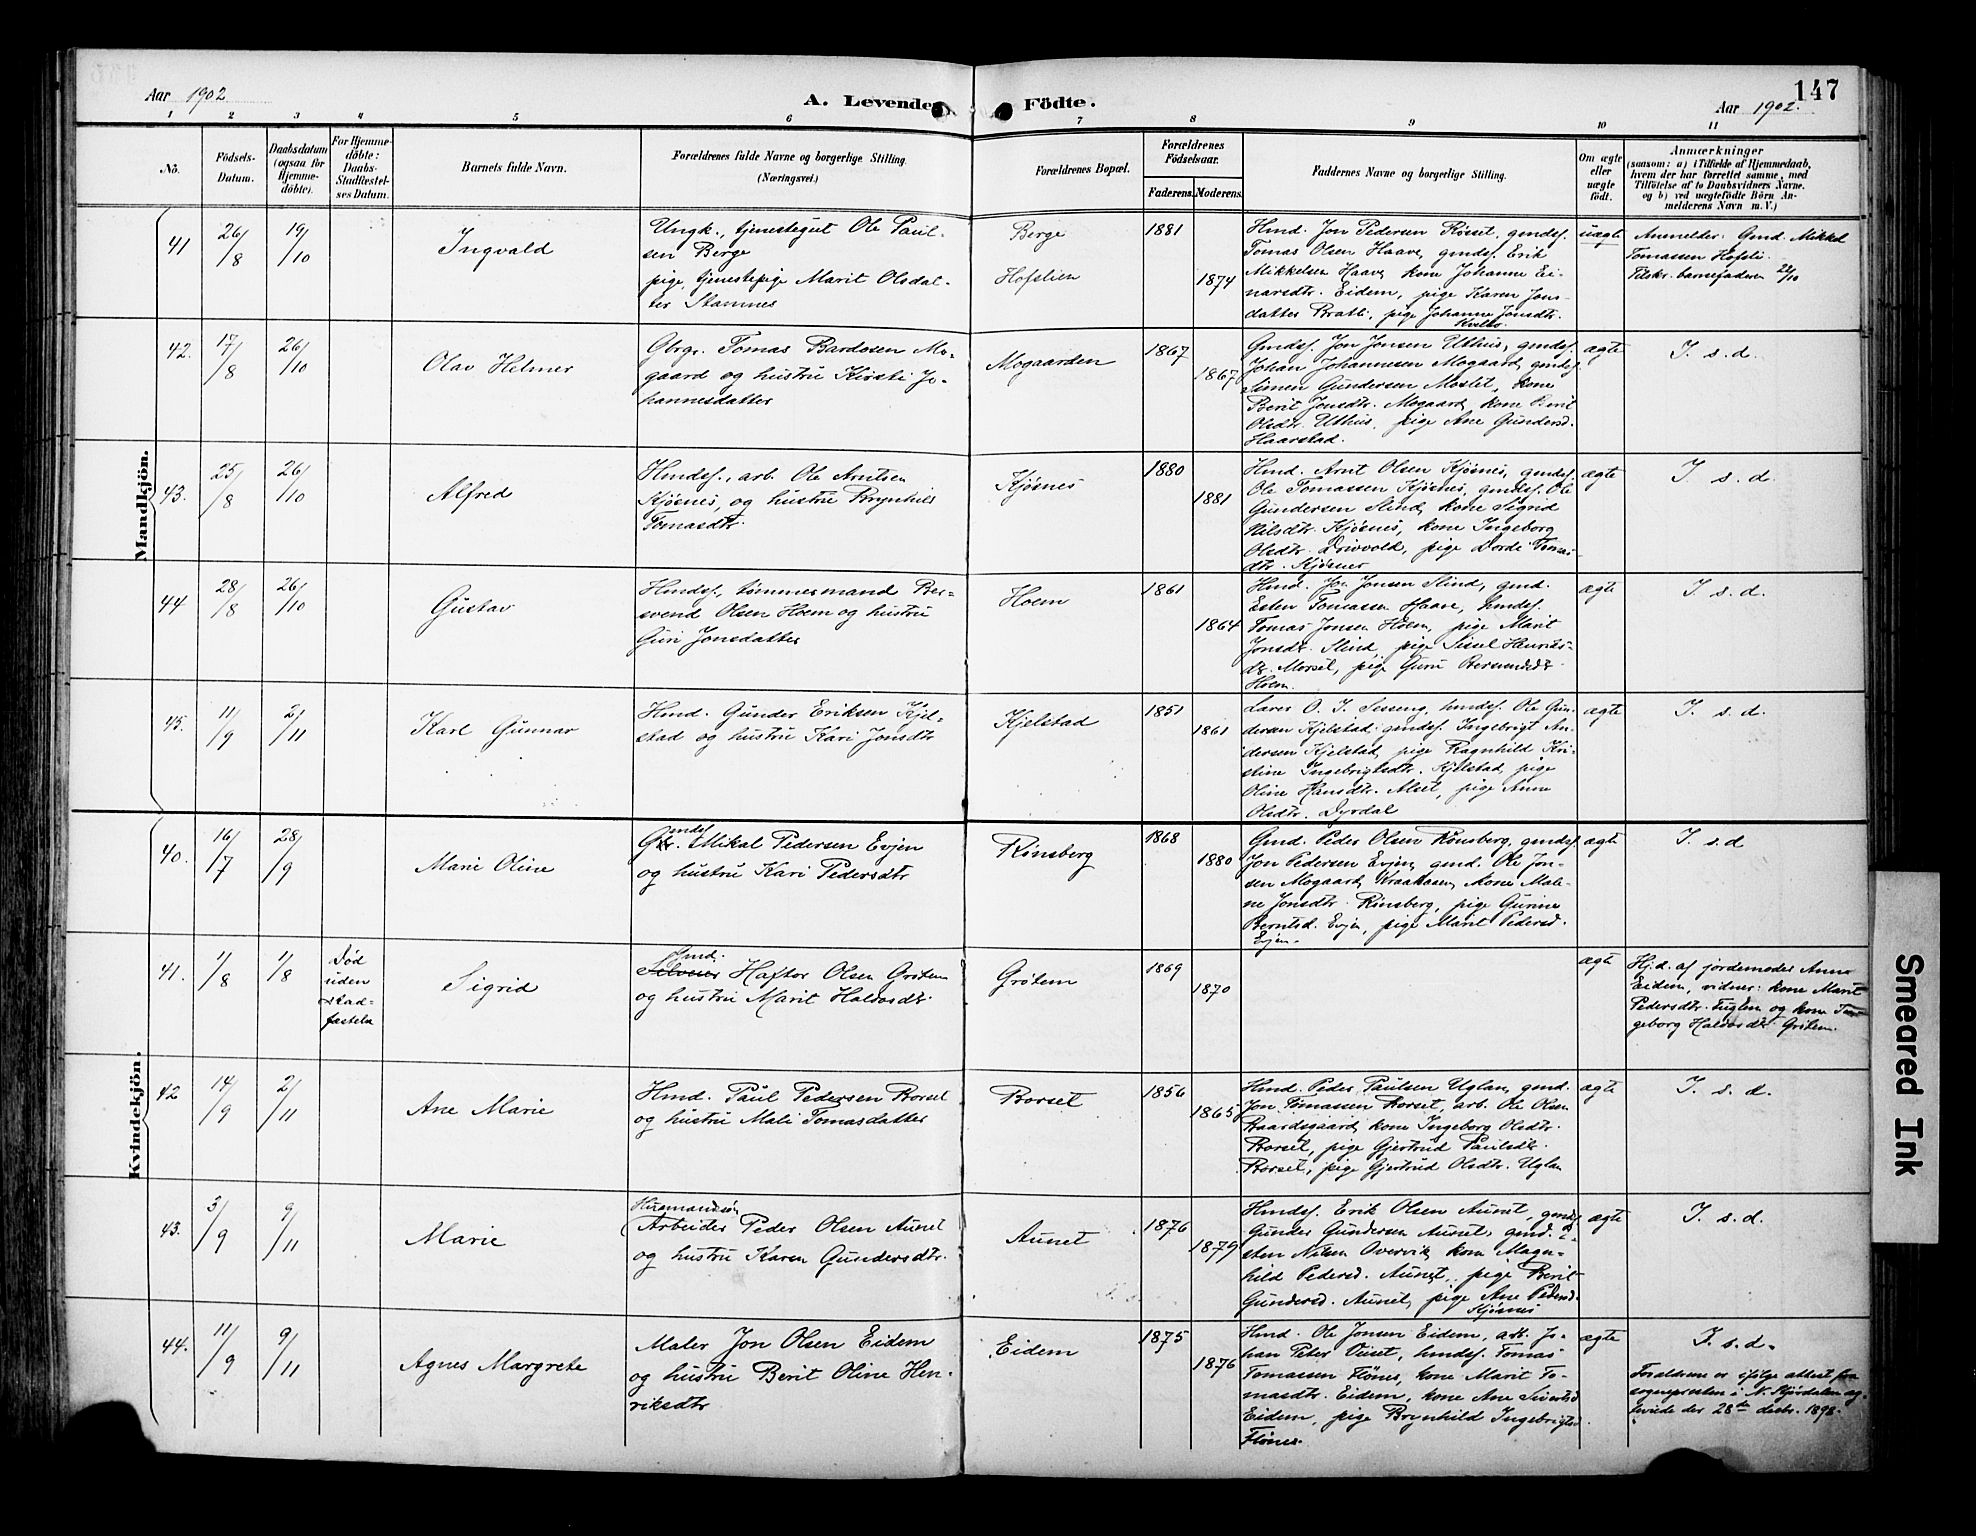 147
Aar 1902
A. Levende Födte.
Aar 1902.
1 2 3 4 5 6 7 8 9 10 11
No.
Födsels-
Datum.
Daabsdatum
(ogsaa for
Hjemme-
döbte).
For Hjemme-
döbte:
Daabs-
Stadfæstel-
ses Datum.
Barnets fulde Navn.
Forældrenes fulde Navne og borgerlige Stilling.
(Næringsvei.)
Forældrenes Bopæl.
Forældrenes
Födselsaar.
Faderens. Moderens.
Faddernes Navne og borgerlige Stilling.
Om ægte
eller
uægte
födt.
Anmærkninger
(saasom: a) i Tilfælde af Hjemmedaab,
hvem der har forrettet samme, med
Tilföielse af to Daabsvidners Navne.
og b) ved uægtefödte Börn An-
melderens Navn m. V.)
Mandkjön.
41
26/8
19/10
Ingvald
Ungk., tjenestegut Ole Paul-
sen Berge
pige, tjenestepige Marit Olsdat-
ter Stamnes
Berge
Hofslien
1881
1874
Hmd. Jon Pedersen Røset, gmdsf.
Tomas Olsen Haave, gmdsf. Erik
Mikkelsen Haave, kone Johanne Ei-
narsdtr. Eidem, pige Karen Jons-
datter Bratli, pige Johanne Jonsdtr.
uægte
Anmelder: Gmd. Mikkel
Tomassen Hofsli.
Tilskr. barnefaderen 22/10
42.
17/8
26/10
Olav Helmer
Gbrgr. Tomas Bardosen Mo-
gaard og hustru Kirsti Jo-
hannesdatter
Mogaarden
1867
1867
Gmdsf. Jon Jonsen Uthus, gmdsf.
Johan Johannesen Mogaard, gmdsf.
Simen Gundersen Moslet, kone
Berit Jonsdtr. Mogaard, kone Berit
Olsdtr. Uthus, pige Ane Gundersd.
Haarstad.
ægte
I. s. d.
43.
25/8
26/10
Alfred
Hmdsf., arb. Ole Arntsen
Kjøsnes, og hustru Brynhild
Tomasdtr.
Kjøsnes
1880
1881
Hmd. Arnt Olsen Kjøsnes, gmdsf.
Ole Tomassen Kjøsnes, gmdsf. Ole
Gundersen Slind, kone Sigrid
Nilsdtr. Kjøsnes, kone Ingeborg
Olsdtr. Drivvold, pige Dorde Tomas-
dtr. Kjøsnes
ægte
I. s. d.
44
28/8
26/10
Gustav
Hmdsf., tømmermand Ber-
svend Olsen Hoem og hustru
Guri Jonsdatter
Hoem
1861
1864
Hmd. Jon Jonsen Slind, gmd.
Esten Tomassen Haave, hmdsf.
Tomas Jonsen Hoem, pige Marit
Jonsdtr. Slind, pige Sissel Henriks-
dtr. Morset, pige Guru Bersvendsdtr.
Hoem.
ægte
I. s. d.
45.
11/9
2/11
Karl Gunnar
Hmd. Gunder Eriksen Kjel-
stad og hustru Kari Jonsdtr
Kjelstad
1851
1861
Lærer O. J. Sesseng, hmdsf. Ole Gun-
dersen Kjelstad, gmdsf. Ingebrigt An-
dersen Kjelstad, pige Ragnhild Kri-
stine Ingebrigtsdtr. Kjelstad, pige
Oline Hansdtr. Alset, pige Anne
Olsdtr. Dyrdal
ægte
I. s. d.
Kvindekjön.
40.
16/7
28/9
Marie Oline
gmdsf
Mikal Pedersen Evjen
og hustru Kari Pedersdtr
Rønsberg
1868
1880
Gmd. Peder Olsen Rønsberg, gmdsf.
Jon Pedersen Evjen, gmd. Ole Jon-
sen Mogaard, Kraakaasen, kone Male-
ne Jonsdtr. Rønsberg, pige Gurine
Berntsd. Evjen, pige Marit Pedersd.
Evjen.
ægte
I. s. d
41.
1/8
1/8
Død
uden
stad-
fæstelse
Sigrid
Hmd.
Selveier Haftor Olsen Grøtem
og hustru Marit Halvorsdtr.
Grøtem
1869
1870
ægte
Hj.d. af jordemoder Anna
Eidem, vidner: kone Marit
Pedersdtr. Fuglem og kone In-
geborg Halvorsdtr. Grøtem.
42
14/9
2/11
Ane Marie
Hmd. Paul Pedersen Borset
og hustru Mali Tomasdatter
Borset
1856
1865
Hmd. Peder Paulsen Uglan, gmd.
Jon Tomassen Borset, arb. Ole Olsen
Baardsgaard, kone Ingeborg Olsdtr.
Borset, pige Gjertrud Paulsdtr.
Borset, pige Gjertrud Olsdtr. Uglan
ægte
I. s. d.
43.
3/9
9/11
Marie
Husmandssøn
Arbeider Peder Olsen Aunet
og hustru Karen Gundersdtr.
Aunet
1876
1879
Hmdsf. Erik Olsen Aunet, gmdsf.
Gunder Gundersen Aunet, gmd. E-
sten Nilsen Overvik, kone Magn-
hild Pedersd. Aunet, pige Berit
Gundersd. Aunet, pige Ane Pedersd.
Kjøsnes
ægte
I. s. d.
44.
11/9
9/11
Agnes Margrete
Maler Jon Olsen Eidem
og hustru Berit Oline Hen-
riksdtr
Eidem
1875
1876
Hmd. Ole Jonsen Eidem, arb. Jo-
han Peter Oiset, hmdsf. Tomas
Tomassen Flønes, kone Marit To-
masdtr. Eidem, kone Ane Sivertsd.
Eidem, pige Brynhild Ingebrigtsd.
Flønes.
ægte
I. s. d.
Forældrene er ifølge attest fra
sognepresten i N. Stjørdalen æg-
teviede der 28de decbr. 1898.
Smeared Ink